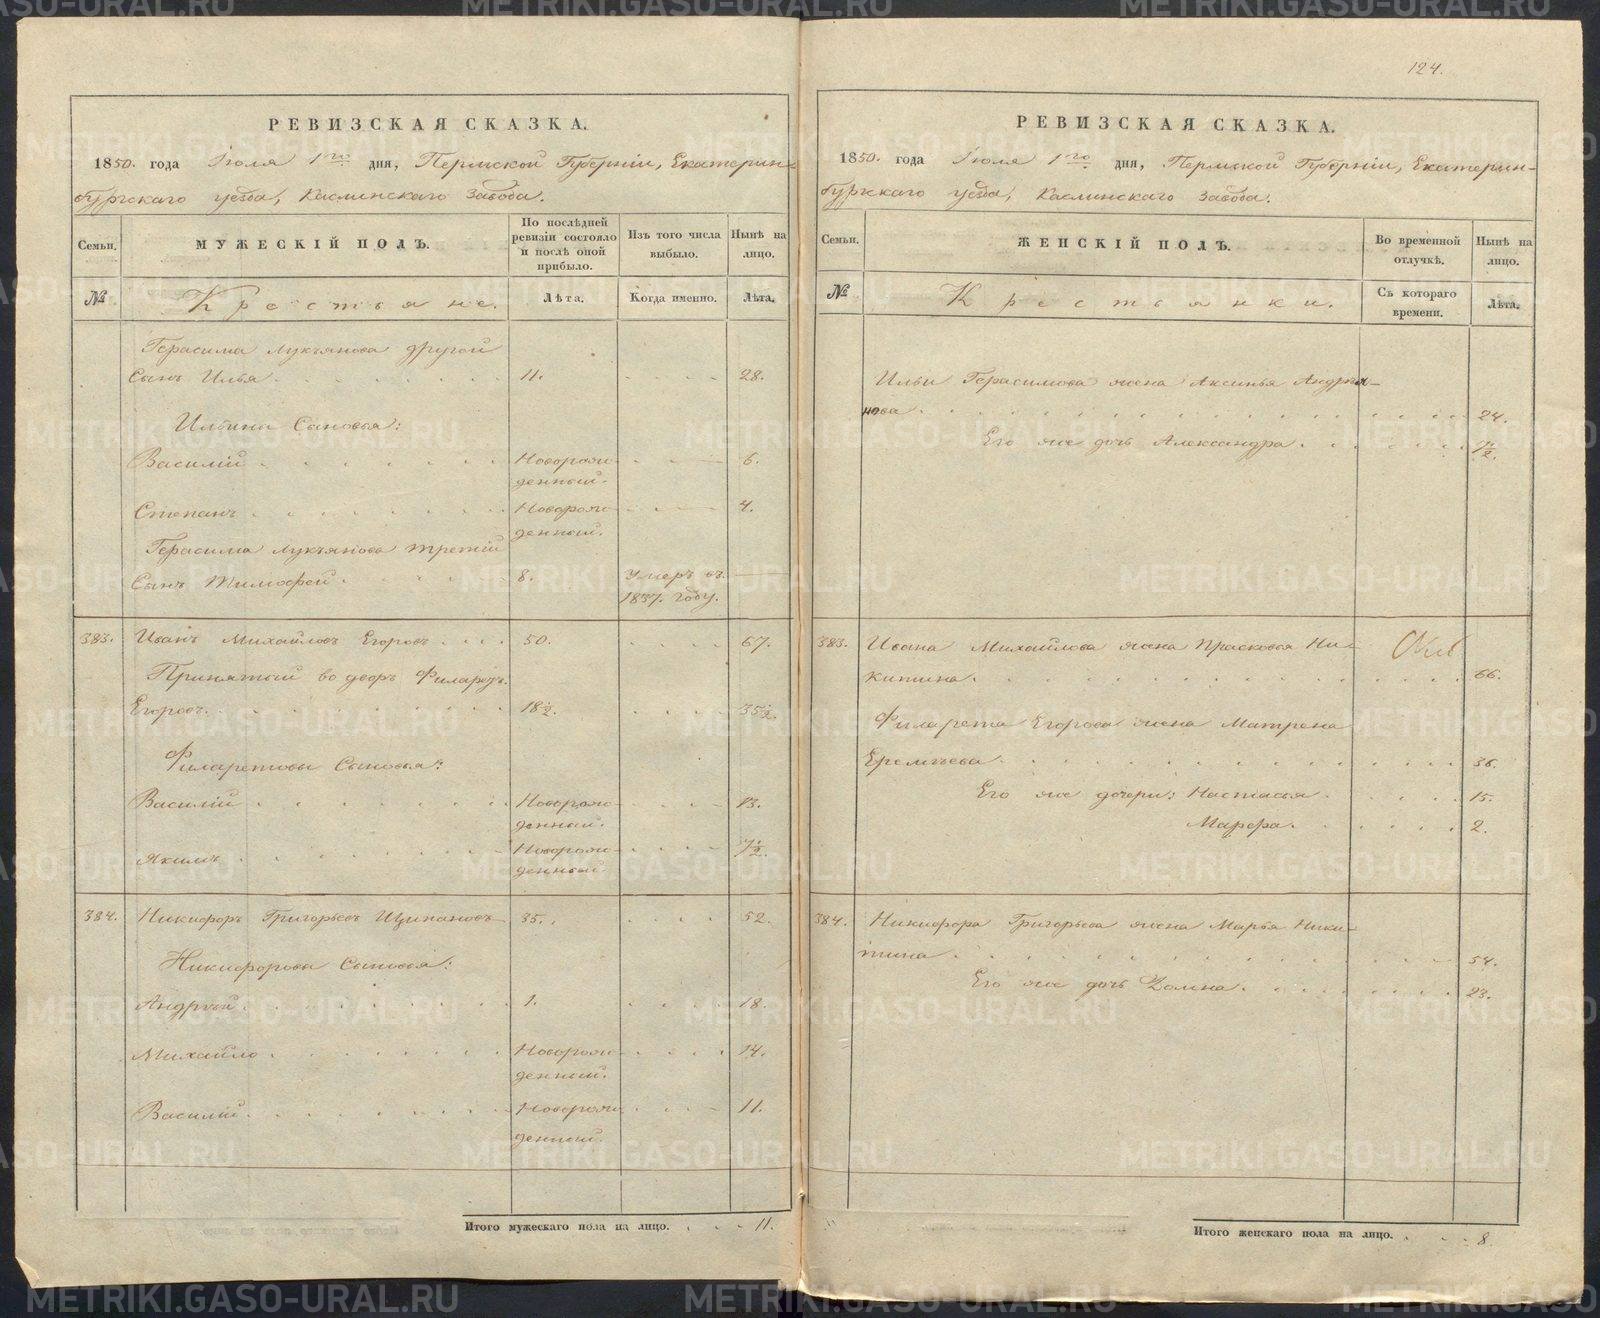 РЕВИЗСКАЯ СКАЗКА.
1850. года Іюля 1го дня, Пермской Губерніи, Екатерин-
бургскаго уезда, Каслинскаго Завода.
Семьи.
МУЖЕСКІЙ ПОЛЪ.
По послѣдней ревизіи состояло и послѣ оной прибыло.
Изъ того числа выбыло.
Нынѣ на лицо.
№
Крестьяне.
Лѣта.
Когда именно.
Лѣта.
Герасима Лукъянова другой
Сынъ Илья 11. 28.
Ильина Сыновья:
Василій Новорож- 6.
денный.
Степанъ Новорож- 4.
денный.
Герасима Лукъянова третій
Сынъ Тимофей 8. Умеръ въ
1837. году.
383. Иванъ Михайловъ Егоровъ 50. 67.
Принятый во дворъ Филаретъ
Егоровъ 18½ 35½
Филаретовы Сыновья:
Василій Новорож- 13.
денный.
Якимъ Новорож- 7½.
денный.
384. Никифоръ Григорьевъ Щипановъ 35. 52.
Никифорова Сыновья:
Андрей 1. 18.
Михайло Новорож- 14.
денный.
Василій Новорож- 11.
денный.
Итого мужескаго пола на лицо. 11.
124.
РЕВИЗСКАЯ СКАЗКА.
1850. года Іюля 1го дня, Пермской Губерніи, Екатерин-
бургскаго уезда, Каслинскаго Завода.
Семьи.
ЖЕНСКІЙ ПОЛЪ.
Во временной отлучкѣ.
Нынѣ на лицо.
№
Крестьянки.
Съ котораго времени.
Лѣта.
Ильи Герасимова жена Аксинья Андрія-
нова 24.
Его же дочь Александра ½.
383. Ивана Михайлова жена Прасковья Ни-
китина 66.
Филарета Егорова жена Матрена
Еремѣева 36.
Его же дочери: Настасья 15.
Марфа 2.
384. Никифора Григорьева жена Марья Ники-
тина 54.
Его же дочь Домна 23.
Итого женскаго пола на лицо. 8.
METRIKI.GASO-URAL.RU